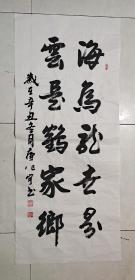 海為龍世界
雲是鶴家鄉
歲在辛丑冬月唐
書